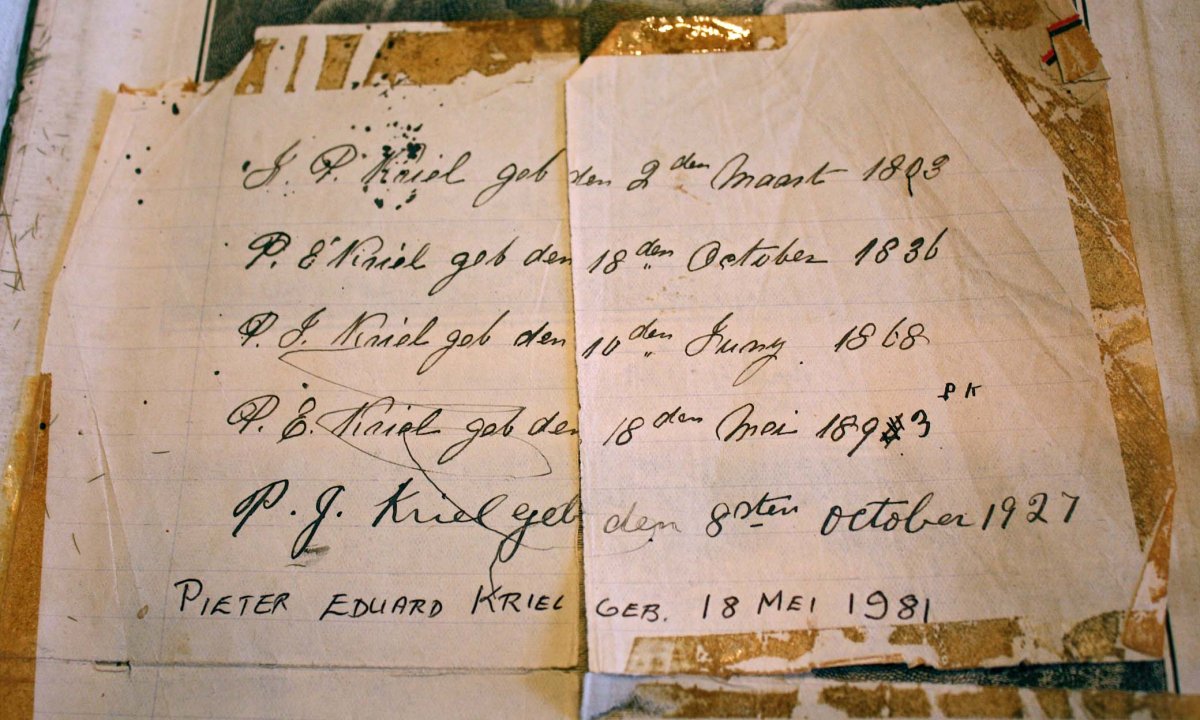 J. P. Kriel geb den 2den Maart 1803
P. E Kriel geb den 18den October 1836
P. J. Kriel geb den 10den Juny 1868
P K
P. E. Kriel geb den 18den Mei 189 3
P. J. Kriel geb den 8sten october 1927
PIETER EDUARD KRIEL GEB. 18 MEI 1981